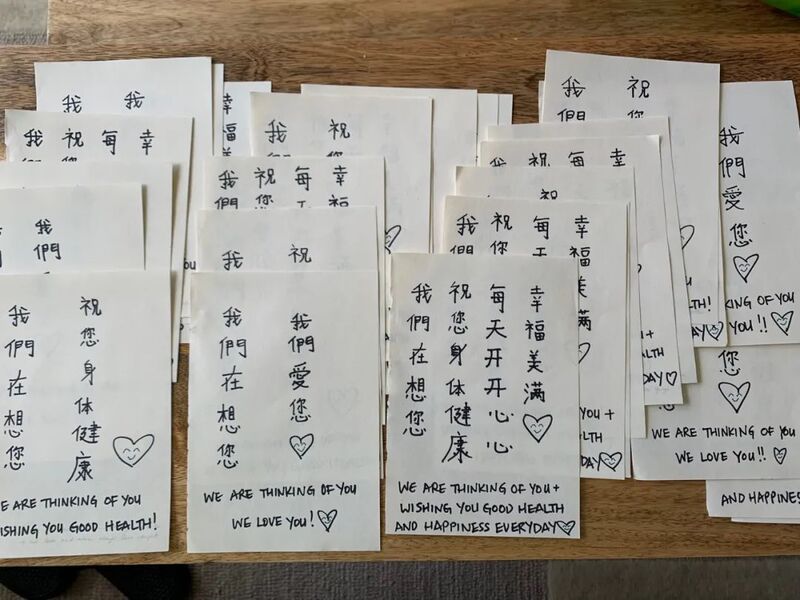 我
我
幸福美
我
祝您
每
幸
我們
祝您
我
祝
我們
祝您
每
幸福
我們
祝您
我們愛您
KING OF YOU
YOU!!
HEALTH!
您
WE ARE THINKING OF YOU
WE LOVE YOU!!
AND HAPPINESS
祝
每
幸
祝
我們
祝您
每天
幸福美滿
我
祝
我們
我們在想您
祝您身体健康
WE ARE THINKING OF YOU
WISHING YOU GOOD HEALTH!
我們在想您
我們愛您
WE ARE THINKING OF YOU
WE LOVE YOU!
我們在想您
祝您身体健康
每天开开心心
幸福美滿
WE ARE THINKING OF YOU +
WISHING YOU GOOD HEALTH
AND HAPPINESS EVERYDAY